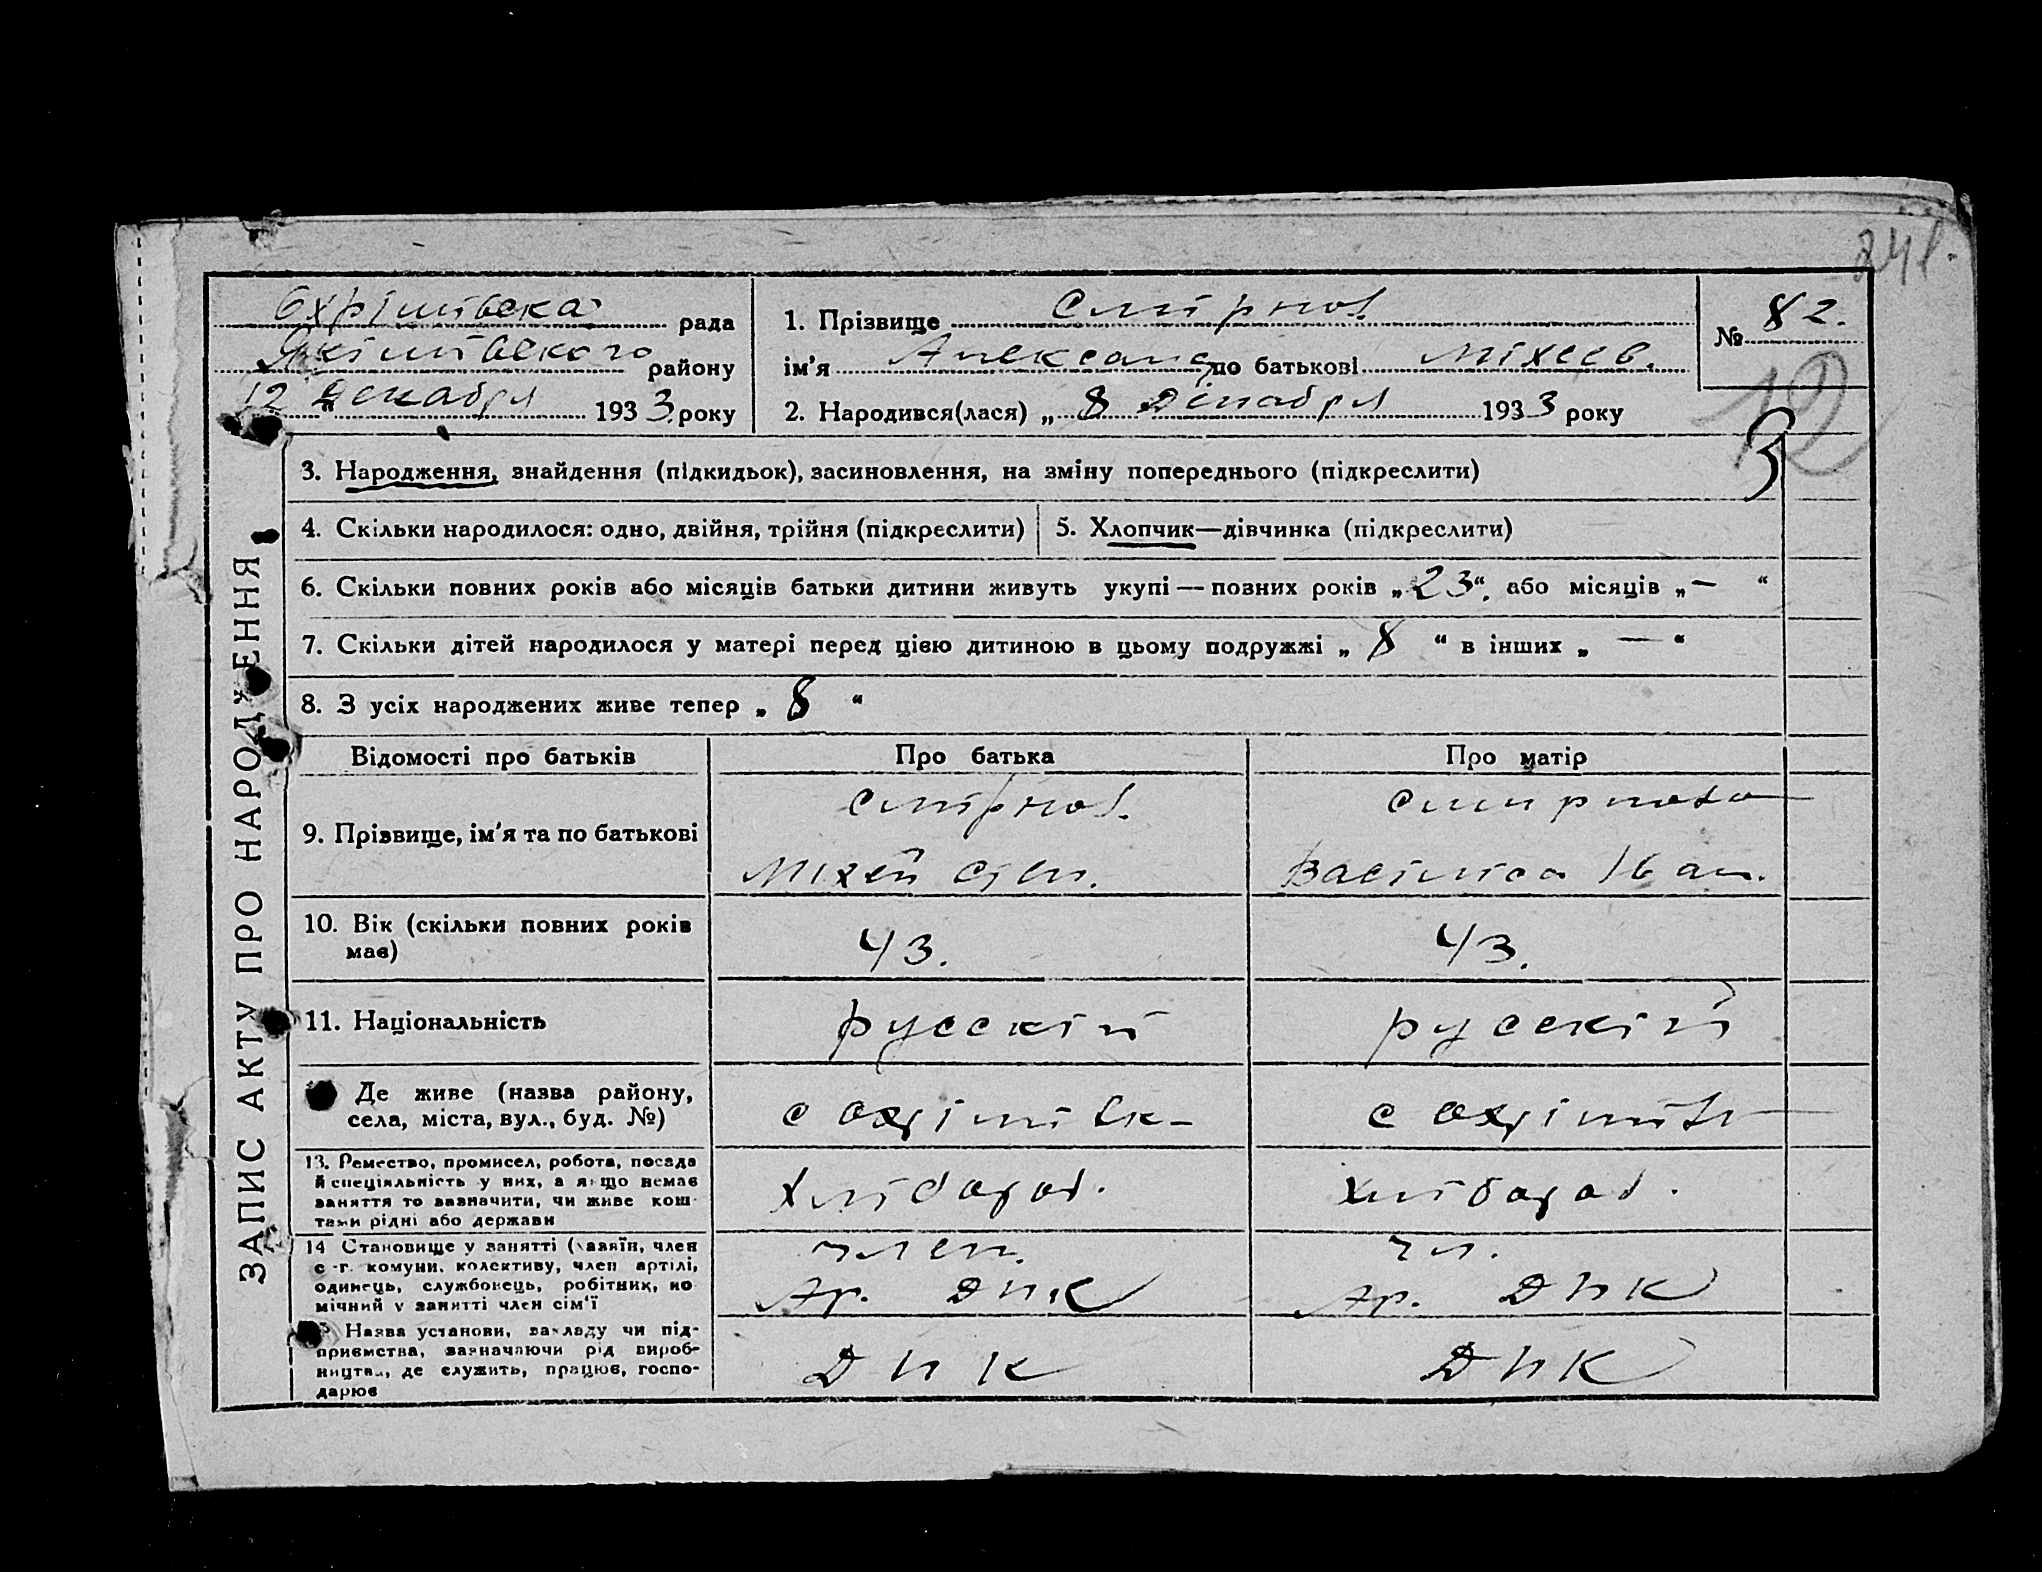 241.
Охрімівска рада
Якімівского району
12 " Декабря 1933 року
1. Прізвище Смірнов.
ім'я Александ по батькові Міхеев.
2. Народився(лася) „ 8 Декабря 1933 року
№ 82.
12
3
ЗАПИС АКТУ ПРО НАРОДЖЕННЯ
3. Народження, знайдення (підкидьок), засиновлення, на зміну попереднього (підкреслити)
4. Скільки народилося: одно, двійня, трійня (підкреслити) 5. Хлопчик—дівчинка (підкреслити)
6. Скільки повних років або місяців батьки дитини живуть укупі — повних років „ 23 “. або місяців „ — “
7. Скільки дітей народилося у матері перед цією дитиною в цьому подружжі „ 8 “ в інших „ — “
8. З усіх народжених живе тепер „ 8 “
Відомості про батьків Про батька Про матір
9. Прізвище, ім'я та по батькові
Смірнов.
Міхей Степ.
Смирнова
Васіліса Іван.
10. Вік (скільки повних років
має)
43.
43.
11. Національність
русскій
русскій
Де живе (назва району,
села, міста, вул., буд. №)
с Охрімівк-
с Охрімів
13. Ремество, промисел, робота, посада
й спеціяльність у них, а якщо немає
заняття то зазначити, чи живе кош-
тами рідні або держави
Хлібороб.
Хлібороб.
14 Становище у занятті (хазяїн, член
с.-г. комуни, колективу, член артілі,
одинець, службовець, робітник, по-
мічний у занятті член сім'ї
член.
Ар. ДНК
чл.
Ар. ДНК
Назва установи, закладу чи під-
приємства, зазначаючи рід вироб-
ництва, де служить, працює, госпо-
дарює
ДНК
ДНК